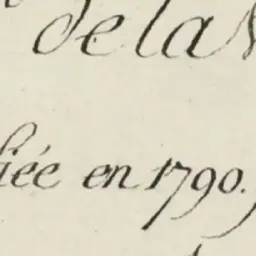 de la
iée en 1790.